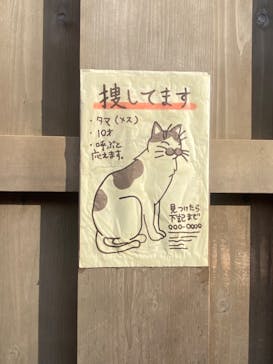 捜してます
・タマ(メス)
・10才
・呼ぶと
応えます。
見つけたら
下記まで
000-0000